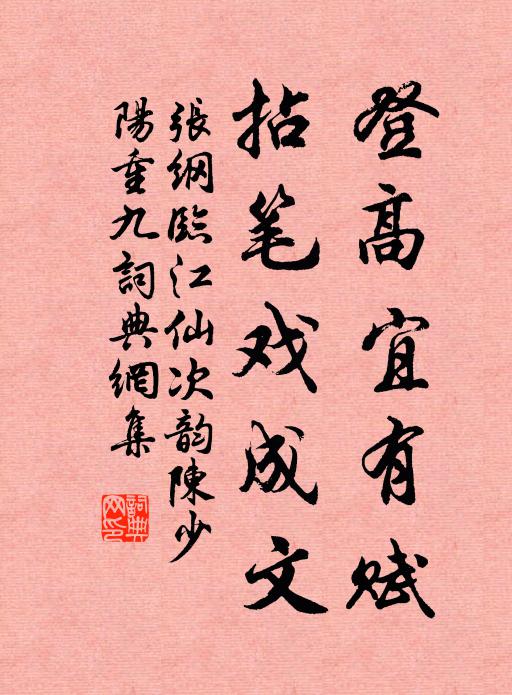 登高宜有赋
拈笔戏成文
張綱臨江仙次韵陳少
陽重九詞典網集
詞典网印